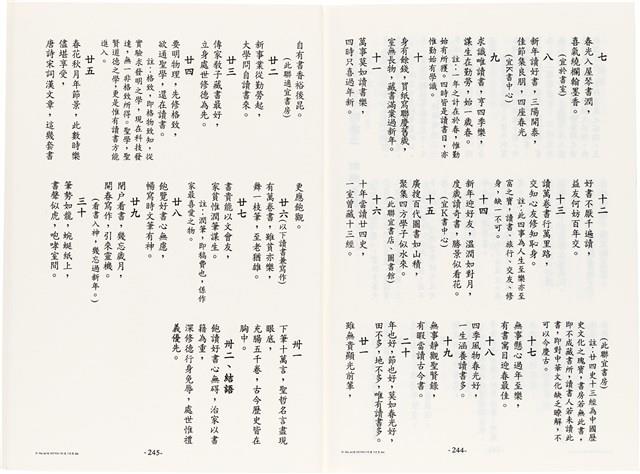 七
春光入屋琴書潤，
喜氣繞欄翰墨香。
(宜於書室)
八
新年讀好書，三陽開泰，
佳節集良朋，四座春光
(宜K書中心)
九
求識唯讀書，亨四季樂，
謀生在勤勞，始一歲春。
註：一年之計在於春，惟勤
始有所獲。四時皆是讀書日，亦
惟勤始有學識。
十
身有餘錢，買紙寫聯慶舊歲，
室無長物，藏書滿架過新年。
十一
萬事莫如讀書樂，
四時只喜過年新。
十二
好書不厭千遍讀，
益友何妨百年交。
十三
讀萬卷書行萬里路，
交知心友修知恥身。
註：此四事為人生至樂亦至
富之寶，讀書、旅行、交友、修
身，缺一不可。
十四
新年迎好友，溫潤如對月，
度歲讀奇書，勝景似看花。
(宜K書中心)
十五
廣搜百代圖書如山積，
聚集四方學子似水來。
(此聯宜書店、圖書館)
十六
十年嘗讀廿四史，
一室曾藏十三經。
(此聯宜書房)
註：廿四史十三經為中國歷
史文化之瑰寶，書房若無此書，
即不成藏書所，讀書人若未讀此
書，即對中華文化缺乏瞭解，不
可以今慶古。
十七
無事懸心過年至樂，
有書寓目迎春最佳。
十八
四季風物春光好，
一生涵養讀書多。
十九
無事靜觀聖賢錄，
有暇當讀古今書。
二十
年也好，節也好，莫如春光好，
田不多，地不多，唯有讀書多。
廿一
雖無貴顯光前輩，
-244-
自有書香裕後昆。
(此聯通宜書房)
廿二
新事業從勤勞起，
大學問自讀書來。
廿三
傳家教子藏書最好，
立身處世修德為先。
廿四
要明物理，先修格致，
欲通聖學，還在讀書。
註：格致，即格物致知，從
實驗求發明之學，現在科技發
達，無一非格致所得。聖學，聖
賢道德之學，更是惟有讀書方能
進入。
廿五
春花秋月年節景，此數時樂
儘堪享受，
唐詩宋詞漢文章，這幾套書
更應飽觀。
廿六(以下讀書兼寫作)
有萬卷書，雖貧亦樂，
舞一枝筆，至老猶雄。
廿七
書貴能以文會友，
家貧惟潤筆謀生。
註：潤筆，即稿費也，係作
家最喜愛之物。
廿八
飽覽好書心無慮，
暢寫時文筆有神。
廿九
閉戶看書，幾忘歲月，
開春寫作，引來靈機。
(看書入神，幾忘過新年。)
三十
筆勢如龍，蜿蜒紙上，
書聲似虎，咆哮室間。
卅一
下筆十萬言，聖哲名言盡現
眼底，
充腸五千卷，古今歷史皆在
胸中。
卅二、結語
飽讀好書心無礙，治家以書
籍為重，
深修德行身免辱，處世惟禮
義優先。
-245-